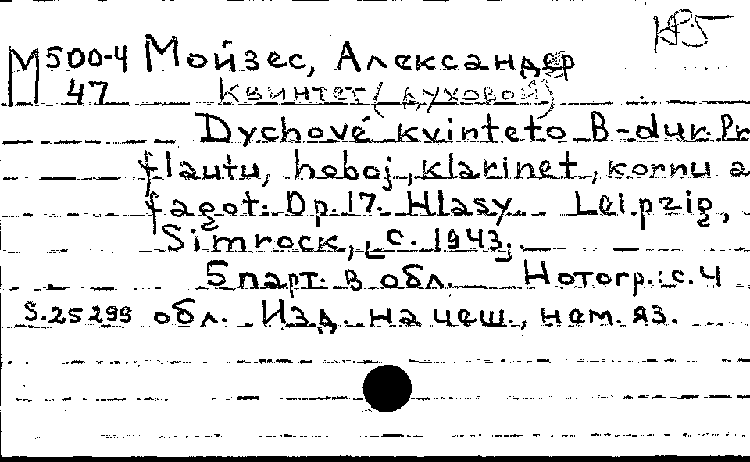 М500-4 Мойзес, Александер
47 Квинтет (духовой)
Dychové kvinteto B-dur. Pr
flautu, hoboj, klarinet, kornu a
fagot. Op. 17. Hlasy. Leipzig,
Simrock, [c. 1943].
5 парт. в обл. Нотогр.: с. 4
S.25299 обл. Изд. на чеш., нем. яз.